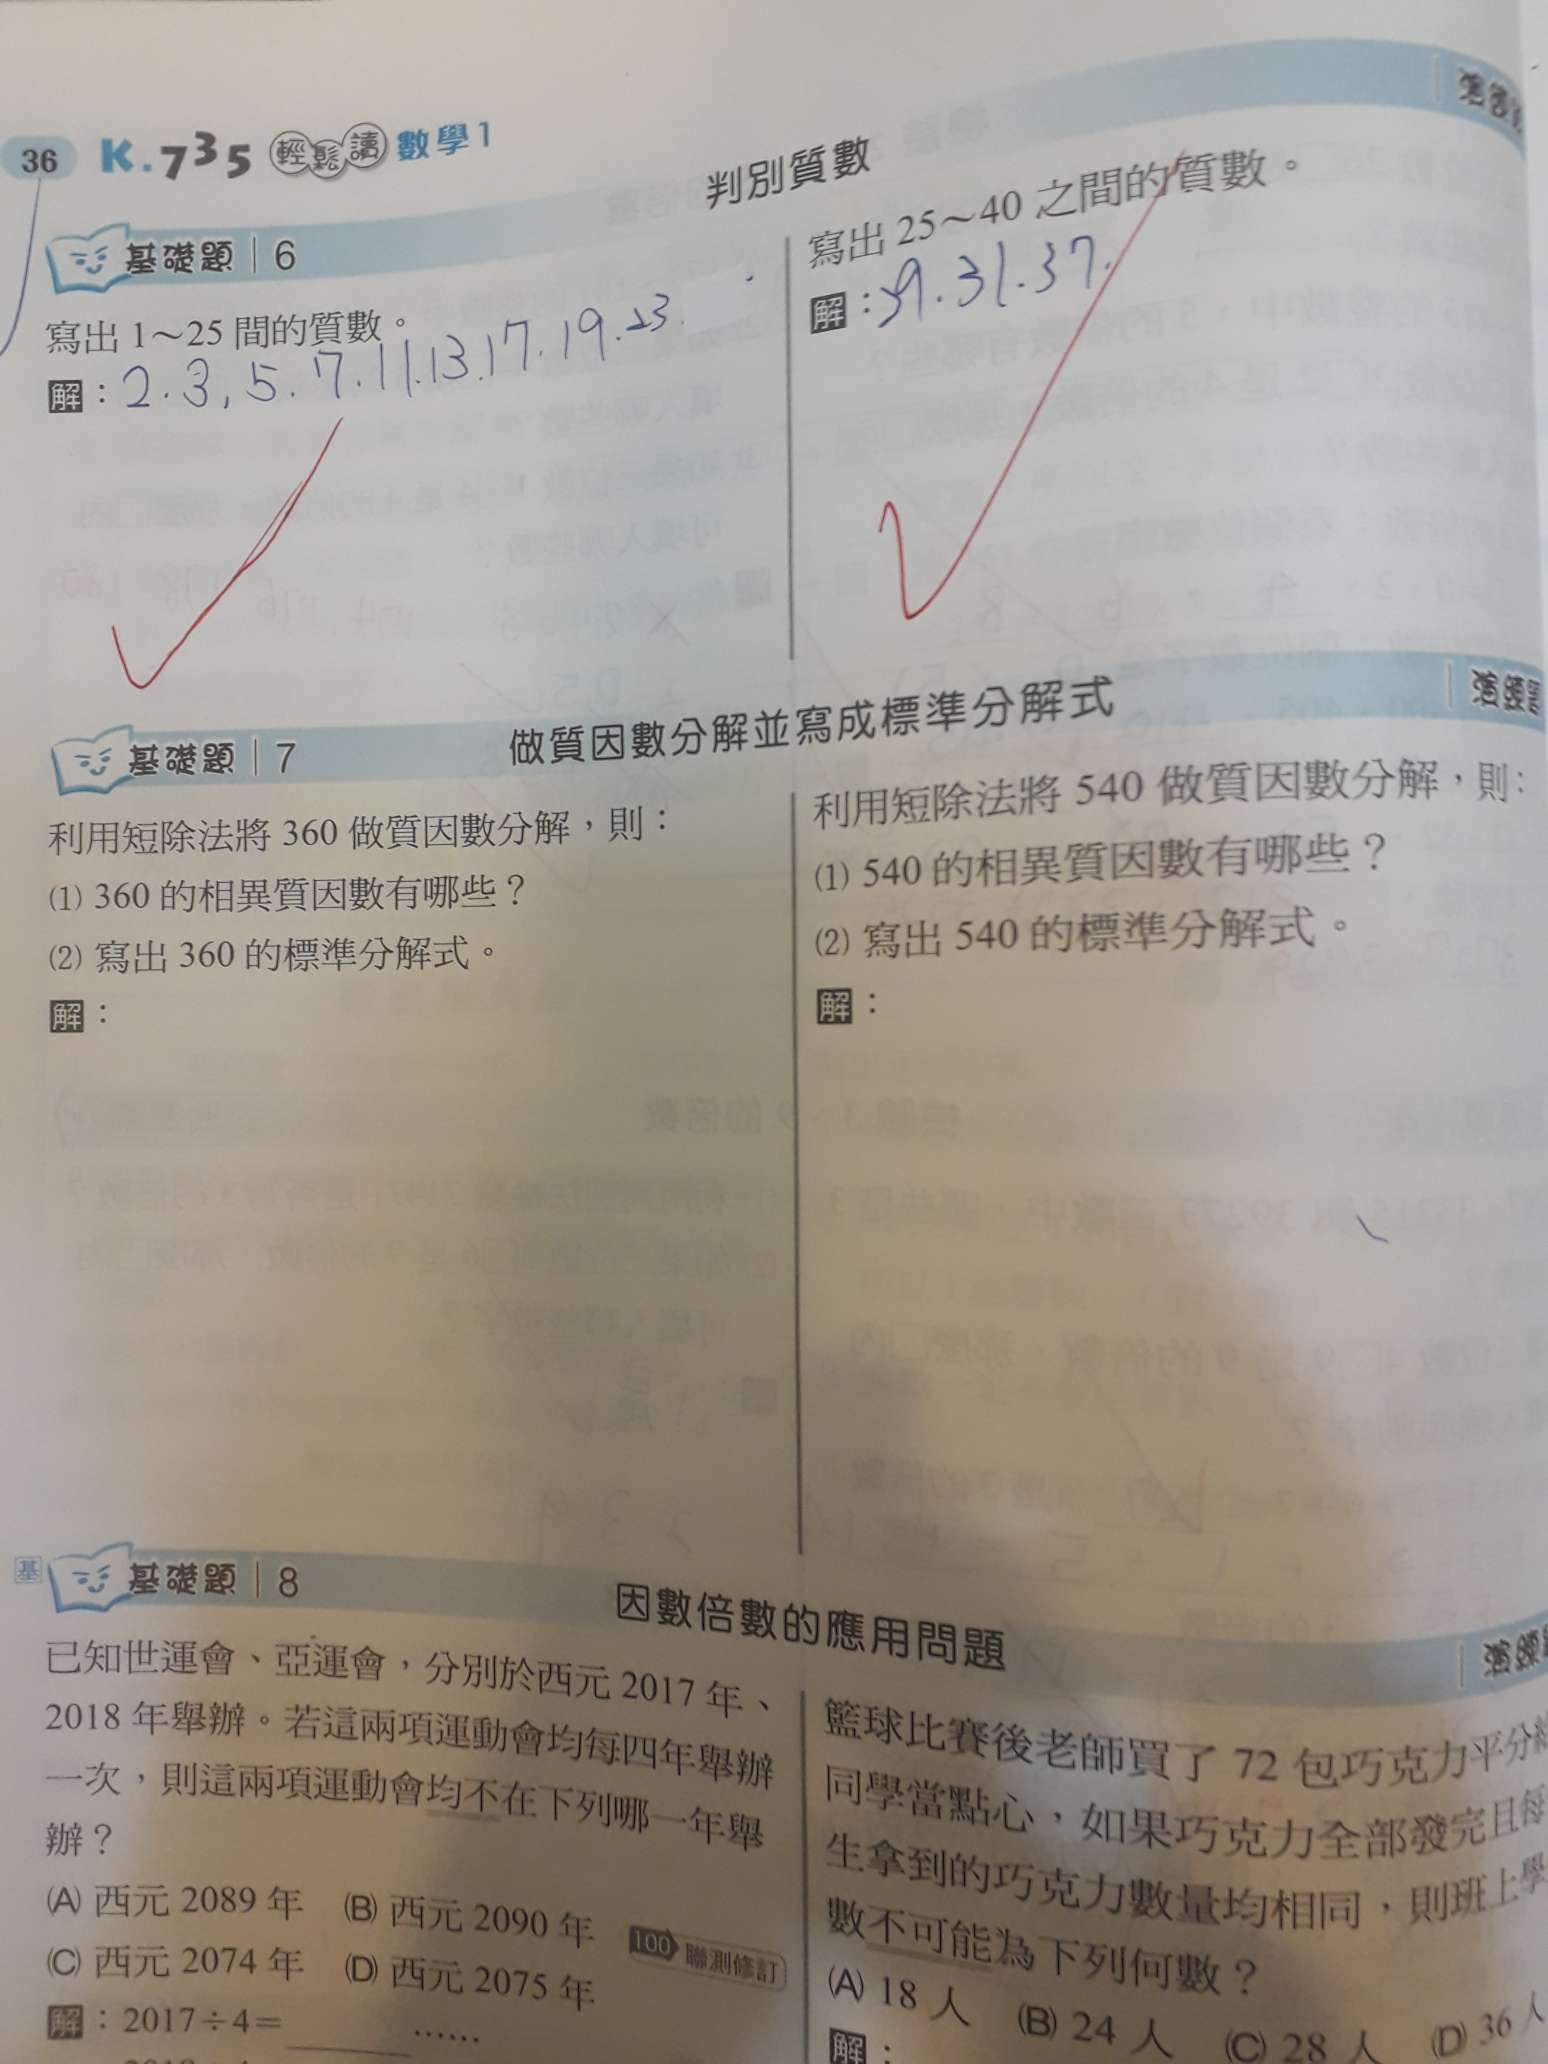 36 K.735 輕鬆讀 數學1
基礎題 6
判別質數
寫出 1～25 間的質數。
解：2.3,5.7.11.13.17.19.23.
寫出 25～40 之間的質數。
解：29.31.37.
基礎題 7
做質因數分解並寫成標準分解式
利用短除法將 360 做質因數分解，則：
(1) 360 的相異質因數有哪些？
(2) 寫出 360 的標準分解式。
解：
利用短除法將 540 做質因數分解，則：
(1) 540 的相異質因數有哪些？
(2) 寫出 540 的標準分解式。
解：
基 基礎題 8
因數倍數的應用問題
已知世運會、亞運會，分別於西元 2017 年、
2018 年舉辦。若這兩項運動會均每四年舉辦
一次，則這兩項運動會均不在下列哪一年舉
辦？
(A) 西元 2089 年 (B) 西元 2090 年
(C) 西元 2074 年 (D) 西元 2075 年
100 聯測修訂
解：2017÷4＝ ……
籃球比賽後老師買了 72 包巧克力平分
同學當點心，如果巧克力全部發完且每
生拿到的巧克力數量均相同，則班上學
數不可能為下列何數？
(A) 18 人 (B) 24 人 (C) 28 人 (D) 36 人
解：